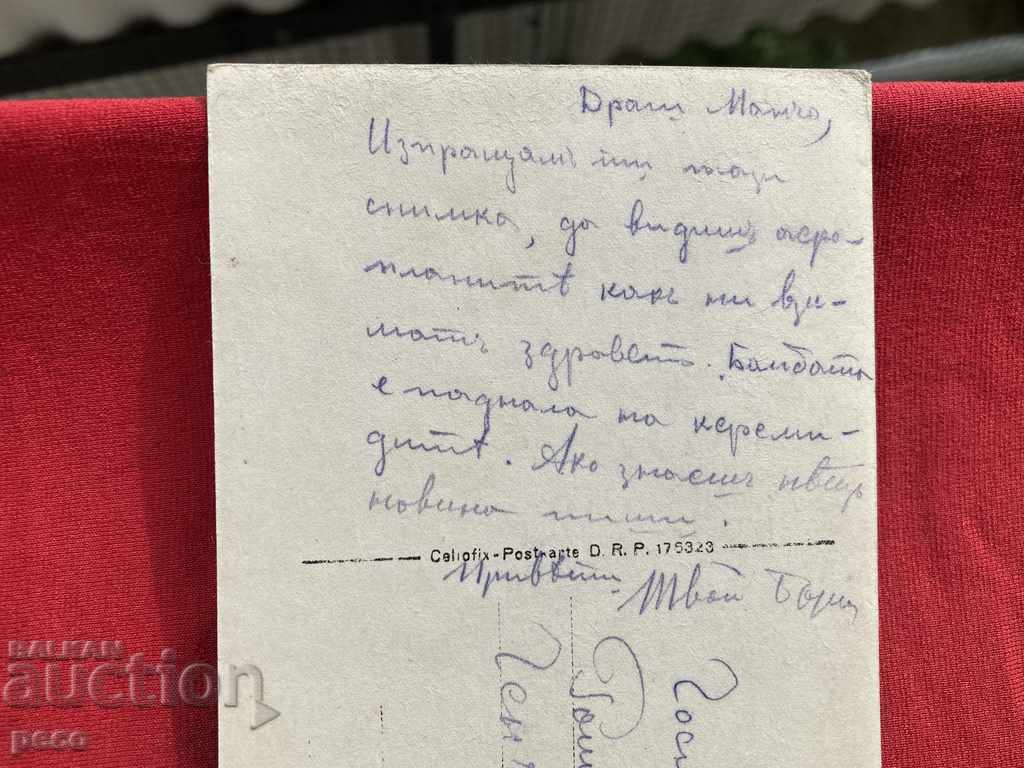 Драги Манчо,
Изпращамъ ти тази
снимка, да видишъ аеро-
планитѣ какъ ни взи-
матъ здравето. Бомбата
е паднала на кереми-
дитѣ. Ако знаешъ нѣщо
новина пиши.
Cellofix-Postkarte D. R. P. 175323
Привѣти Твой Борис
Госп
Ген
BALKAN
auction
peco